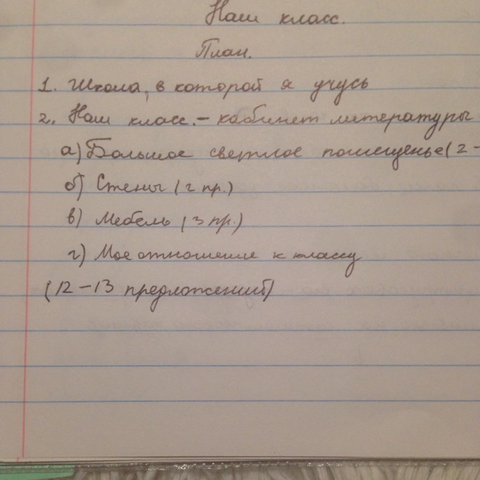 Наш класс.
План.
1. Школа, в которой я учусь
2. Наш класс. - кабинет литературы
а) Большое светлое помещенье (2-
б) Стены (2 пр.)
в) Мебель (3 пр.)
г) Мое отношение к классу
(12-13 предложений)